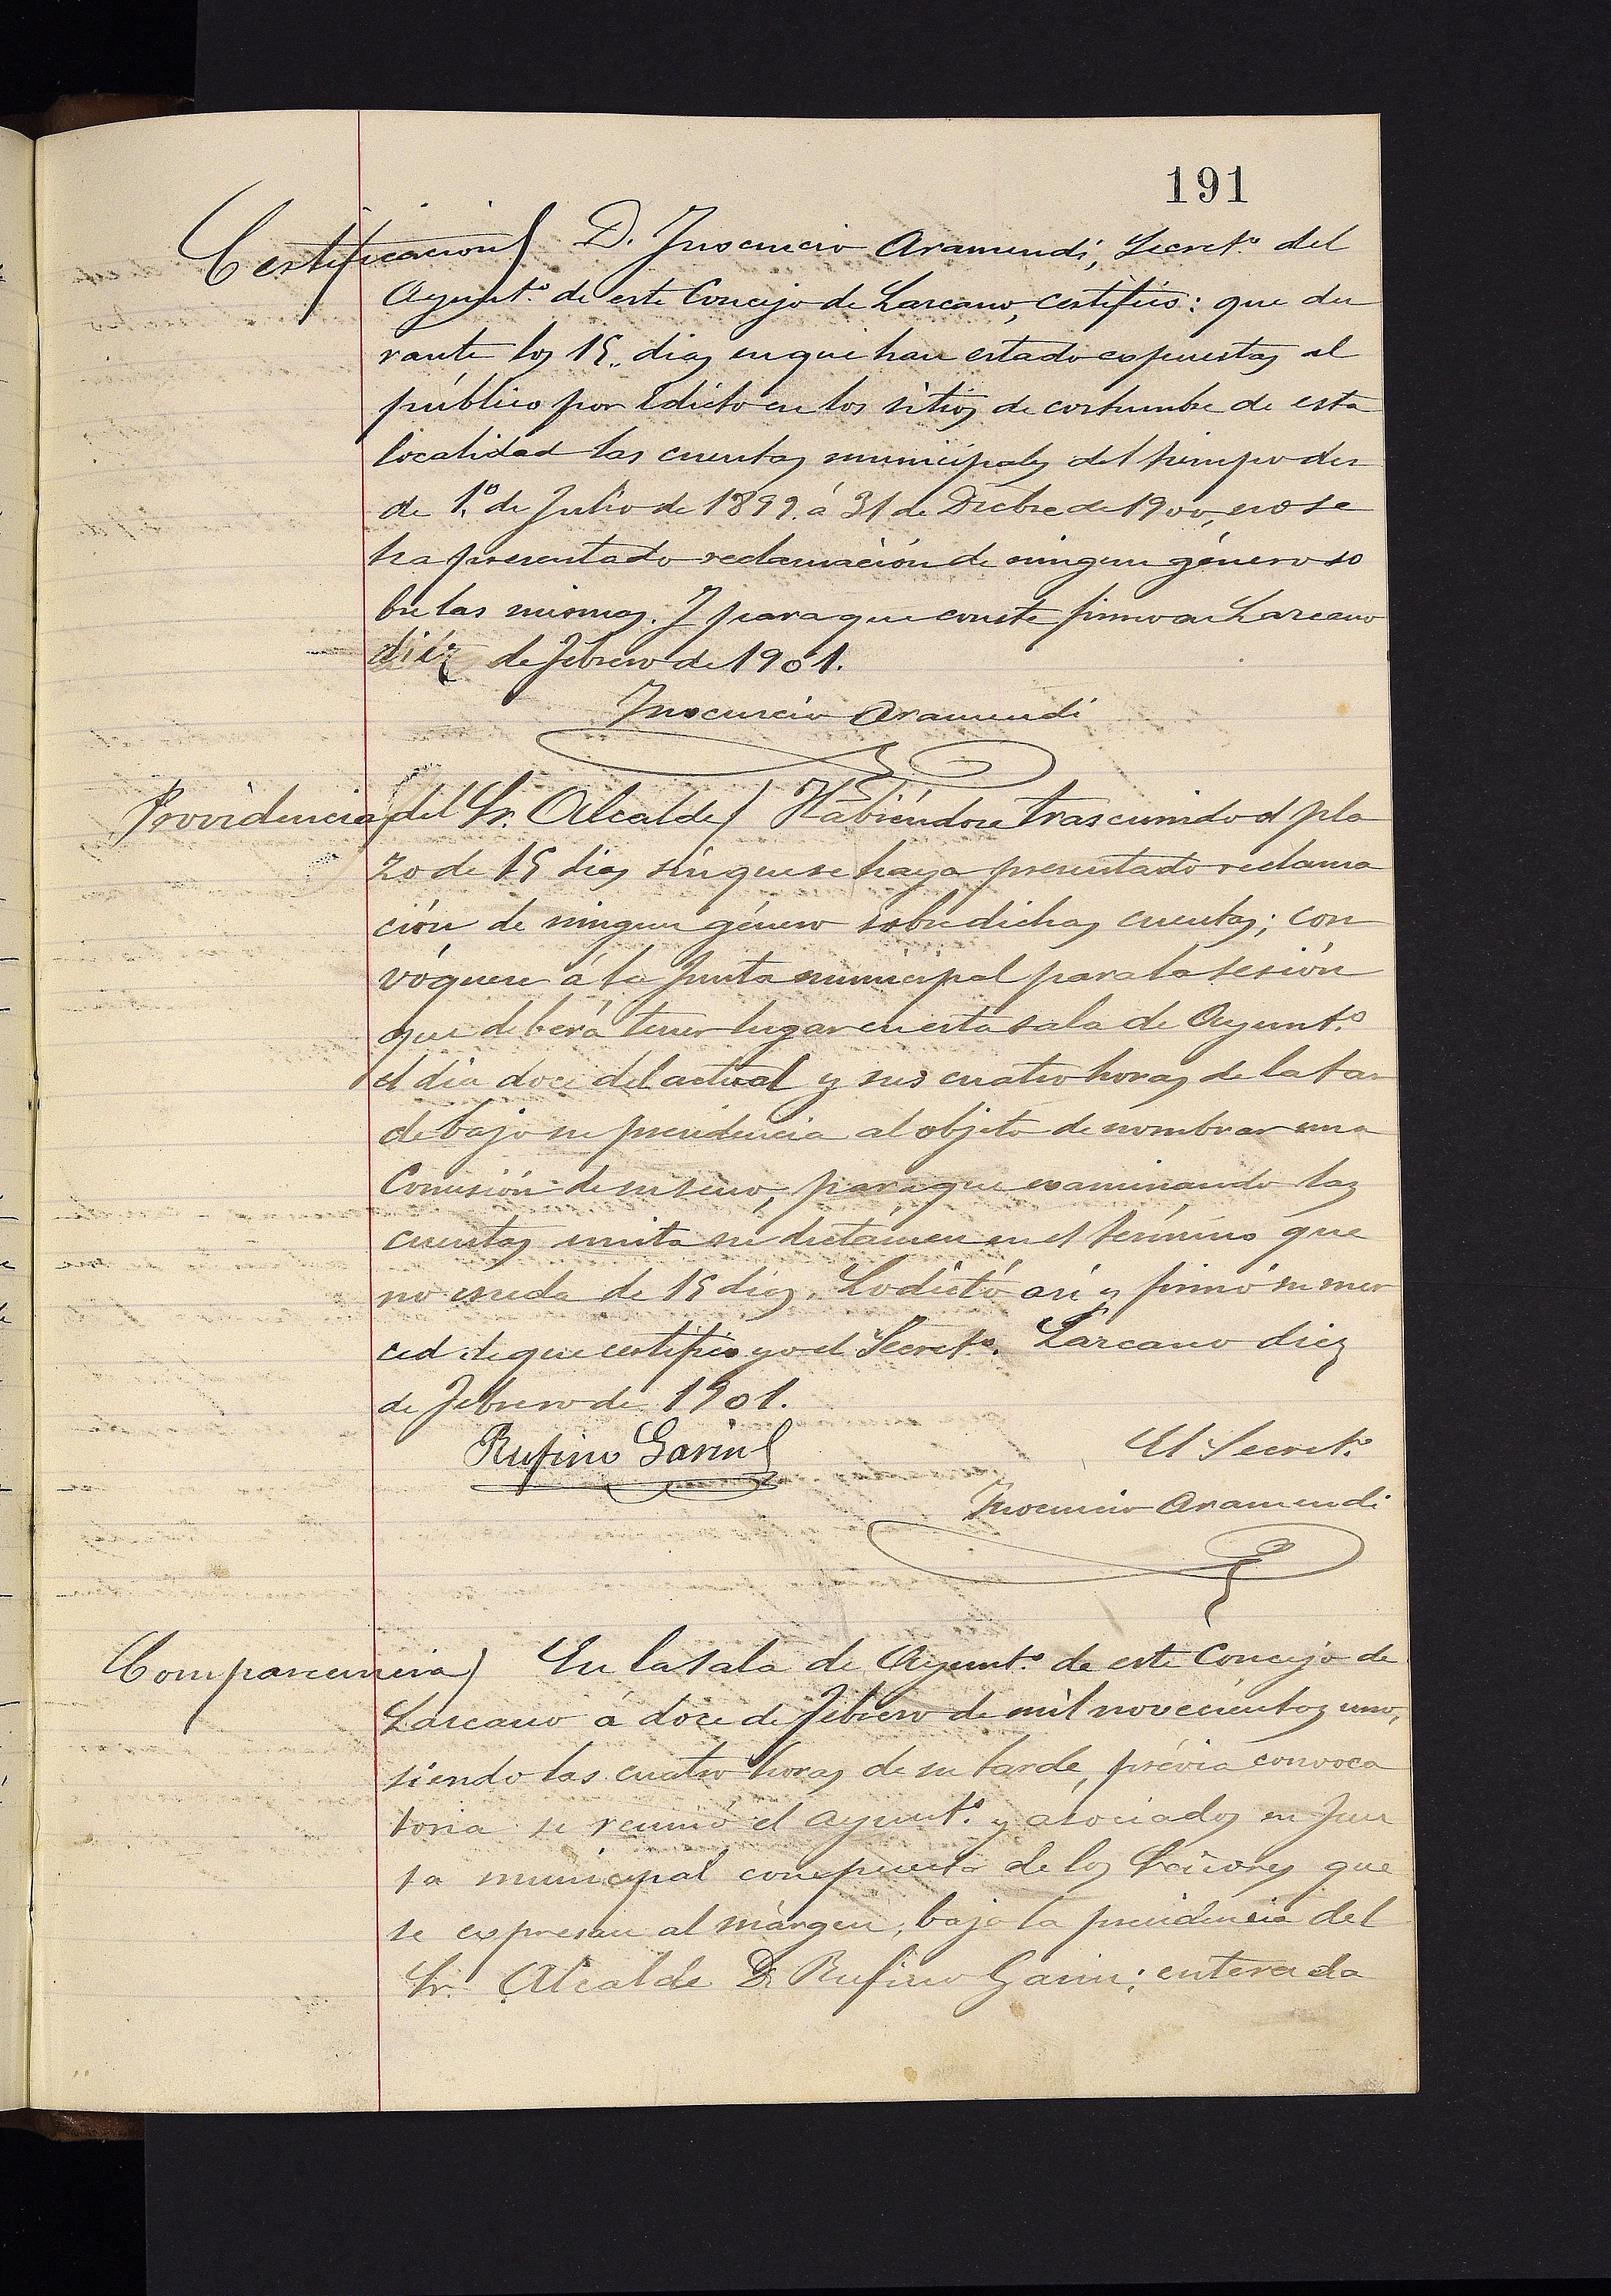 191
Certificacion) D. Inocencio Aramendi, Secret.º del
Ayunt.º de este Concejo de Lazcano, certifico: que du
rante los 15 dias en que han estado espuestas al
público por Edicto en los sitios de costumbre de esta
localidad las cuentas municipales del tiempo des
de 1.º de Julio de 1899 á 31 de Dicbre de 1900, no se
ha presentado reclamación de ningun género so
bre las mismas. Y para que conste firmo en Lazcano
diéz de Febrero de 1901.
Inocencio Aramendi
Providencia del Sr. Alcalde) Habiéndose trascurrido el pla
zo de 15 dias sin que se haya presentado reclama
ción de ningun género sobre dichas cuentas; con
vóquese á la Junta municipal para la sesión
que deberá tener lugar en esta sala de Ayunt.º
el dia doce del actual y sus cuatro horas de la tar
de bajo su presidencia al objeto de nombrar una
Comisión de su seno, para que examinando las
cuentas emita su dictámen en el término que
no esceda de 15 dias. Lo dictó así y firmó su mer
ced de que certifico yo el Secret.º. Lazcano diez
de Febrero de 1901.
Rufino Garin
El Secret.º
Inocencio Aramendi
Comparecencia) En la sala de Ayunt.º de este Concejo de
Lazcano á doce de Febrero de mil novecientos uno,
siendo las cuatro horas de su tarde, prévia convoca
toria se reunió el Ayunt.º y asociados en Jun
ta municipal compuesta de los Señores que
se espresan al márgen, bajo la presidencia del
Sr. Alcalde D. Rufino Garin; enterada